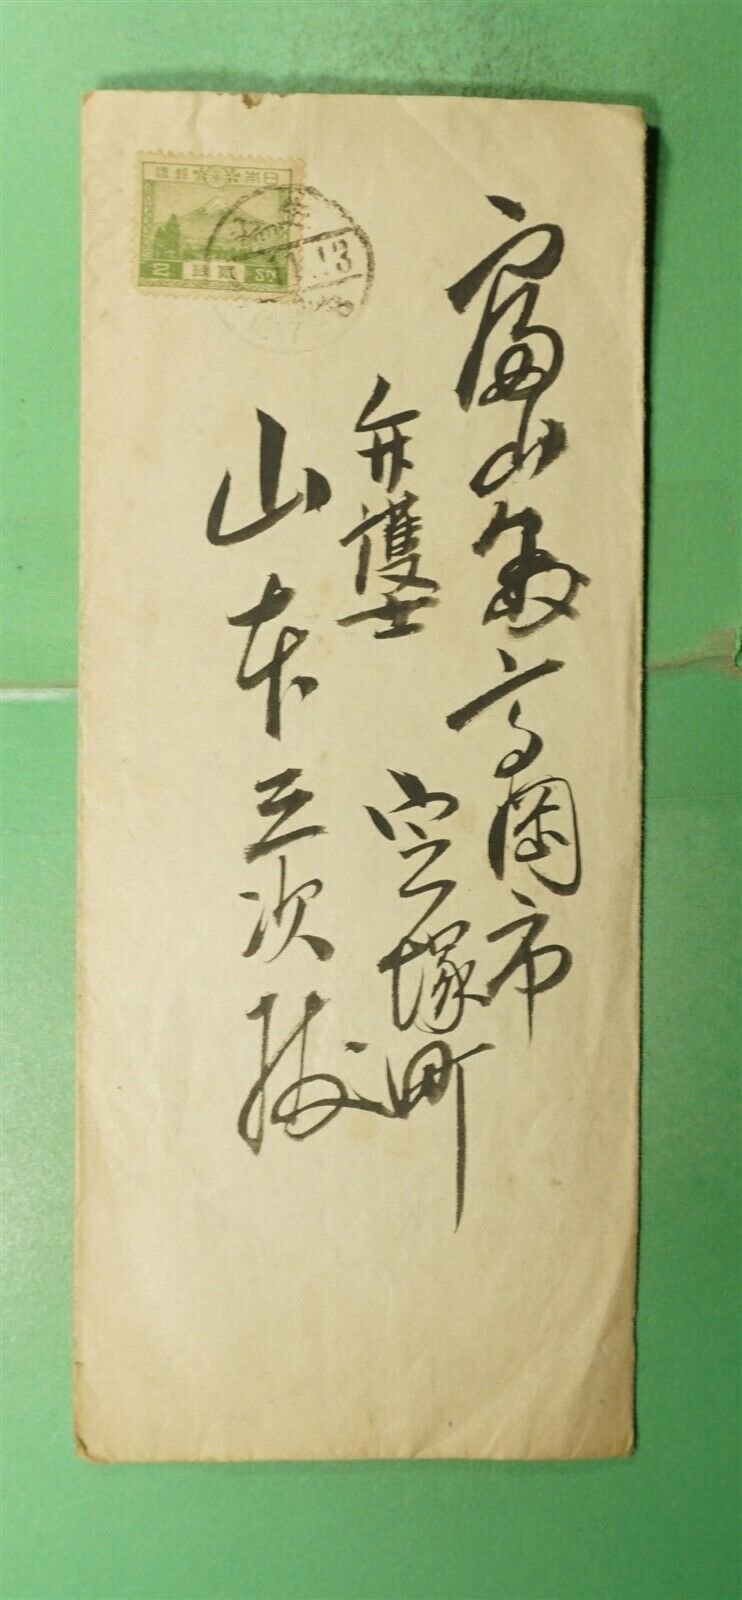 富山縣高岡市
定塚町
弁護士
山本三次様
日本郵便
2 錢貳 Sn
13